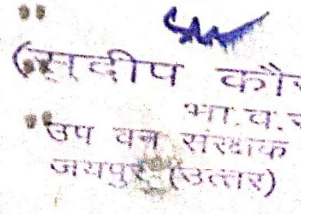 (सुदीप कौर
भा.व.से
उप वन संरक्षक
जयपुर (उत्तर)